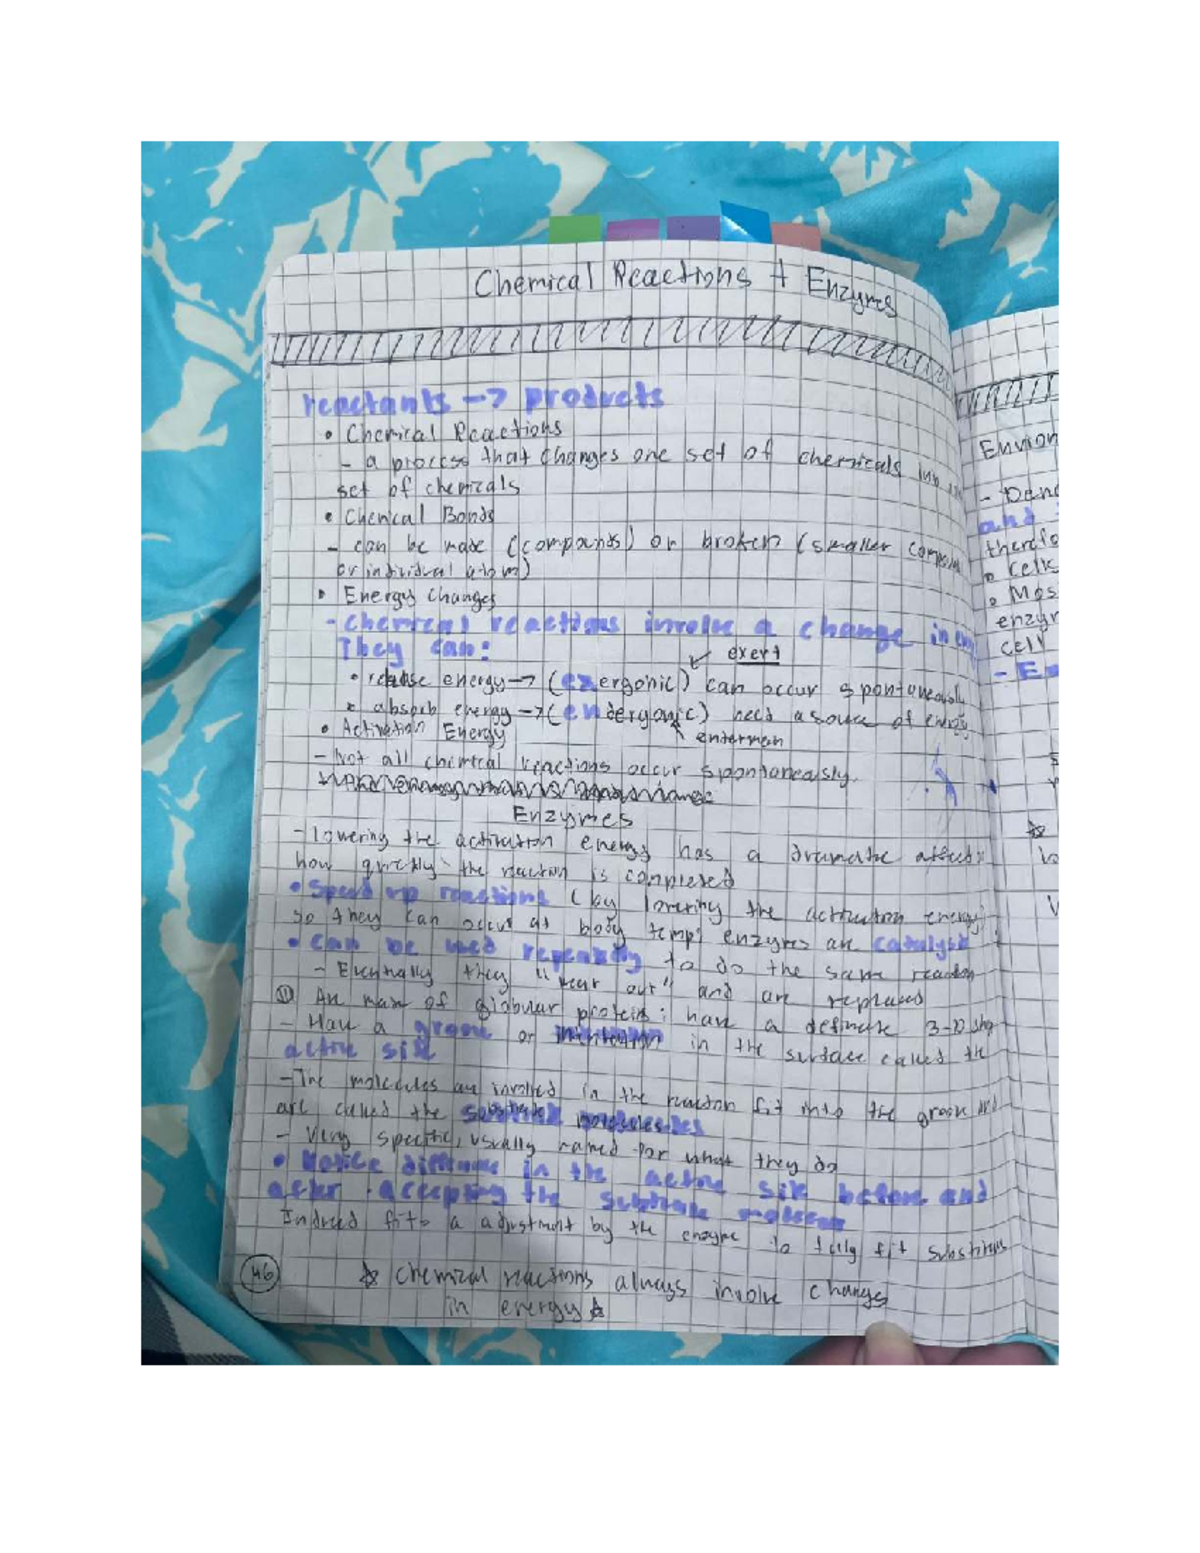 Chemical Reactions + Enzymes
reactants -> products
• Chemical Reactions
- a process that changes one set of chemicals into
set of chemicals
• Chemical Bonds
- can be made (compounds) or broken (smaller
or individual atoms)
• Energy Changes
- Chemical reactions involve a change in
They can:
exert
• release energy -> (exergonic) can occur spontaneously
• absorb energy -> (endergonic) need a source of energy
• Activation Energy
enter
- Not all chemical reactions occur spontaneously.
Enzymes
- lowering the activation energy has a dramatic affect
how quickly the reaction is completed
• Speed up reactions (by lowering the activation energy
so they can occur at body temp; enzymes are catalysts
• Can be used repeatedly to do the same reaction
- Eventually they "wear out" and are replaced
of globular protein; have a definate 3-D shp
- Have a groove or in the surface called the
active site
- The molecules are involved in the reaction fit into the groove and
are called the substrate molecules
- Very specific, usually named for what they do
• Notice difference in the active site before and
after accepting the substrate molecule
Induced fit is a adjustment by the enzyme to fully fit substrates
46
☆ Chemical reactions always involve changes
in energy ☆
Environ
and
therefo
• Cells
• Mos
enzym
cell